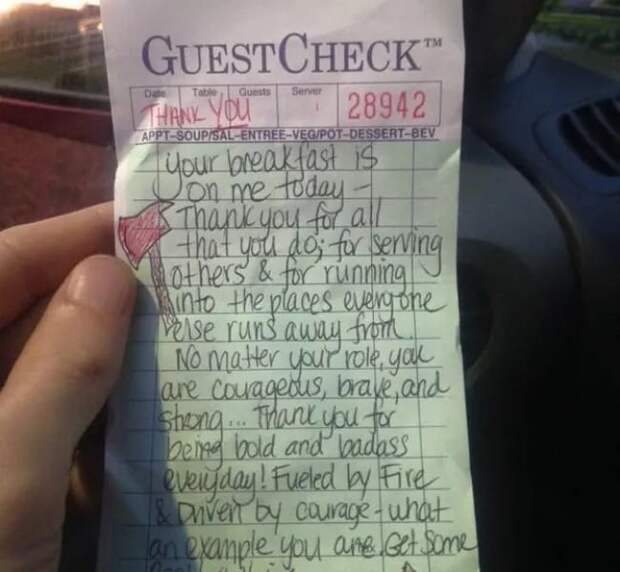 GUESTCHECK™
Date Table Guests Server
THANK YOU 28942
APPT-SOUP/SAL-ENTREE-VEG/POT-DESSERT-BEV
your breakfast is
on me today -
Thank you for all
that you do; for serving
others & for running
into the places everyone
else runs away from.
No matter your role, you
are courageous, brave, and
strong... Thank you for
being bold and badass
everyday! Fueled by Fire
& Driven by courage - what
an example you are. Get Some